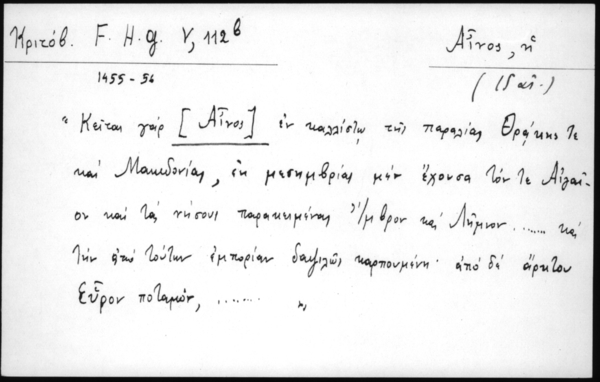 Κριτόβ. F. H. g. V, 112 b
Αἶνος, ἡ
1455-56
(15 αἰ.)
"Κεῖται γάρ [Αἶνος] ἐν καλλίστῳ τῆς παραλίας Θρᾴκης τε
καί Μακεδονίας, ἐκ μεσημβρίας μέν ἔχουσα τόν τε Αἰγαῖ-
ον καί τάς νήσους παρακειμένας Ἴμβρον καί Λῆμνον ....... καί
τήν ἀπό τούτων ἐμπορίαν δαψιλῶς καρπουμένη· ἀπό δέ ἄρκτου
Εὗρον ποταμόν, ........ "